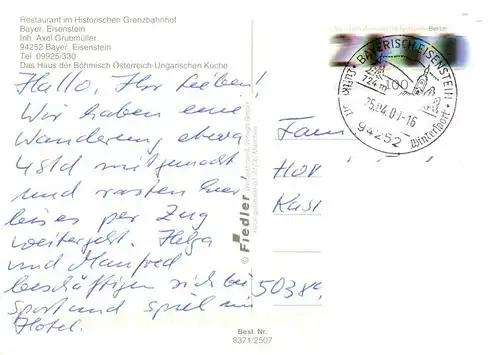 Restaurant im Historischen Grenzbahnhof
Bayer. Eisenstein
Inh. Axel Grubmüller
94252 Bayer. Eisenstein
Tel. 09925/330
Das Haus der Böhmisch Österreich-Ungarischen Küche
Hallo, Ihr Lieben!
Wir haben eine
Wanderung, etwa
4 Std mitgemacht
und rasten hier
bis es per Zug
weitergeht. Helga
und Manfred
beschäftigen sich bei
Sport und Spiel im
Hotel.
© Fiedler
Best. Nr.
8371/2507
Berlin
100
BAYERISCH EISENSTEIN
724 m
25.04.01-16
94252 Wintersport
Fam
Hop
Kast
50389